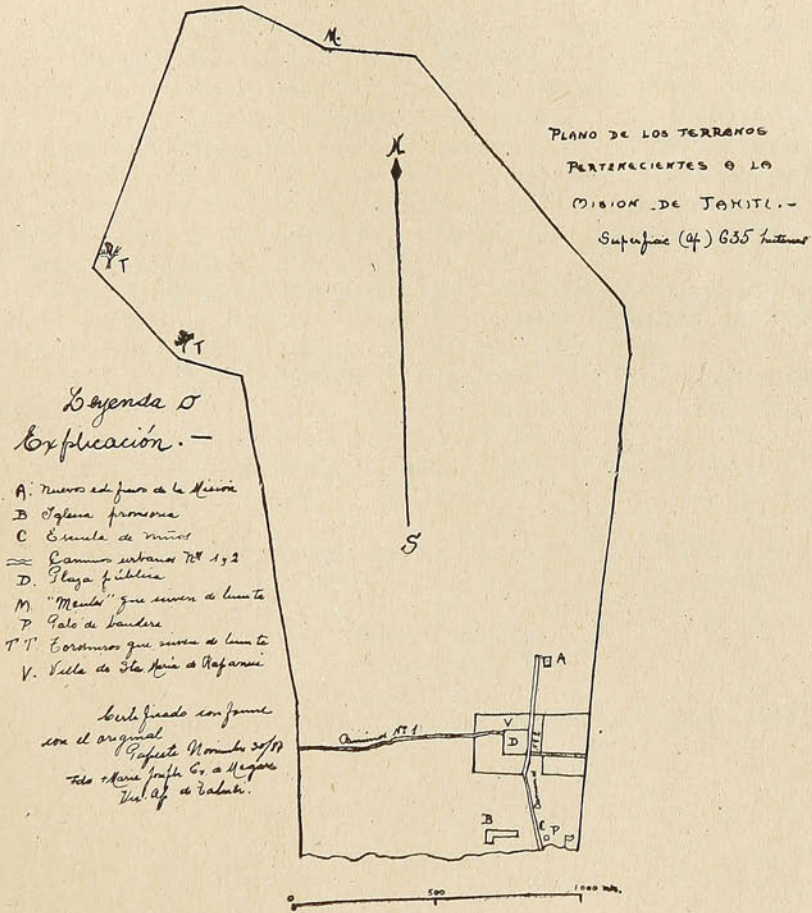 PLANO DE LOS TERRENOS
PERTENECIENTES A LA
MISION DE TAHITI.-
Superficie (Ap.) 635 hectareas
M.
N
S
T
T
Leyenda o
Explicación.—
A. Nuevos edificios de la Misión
B Iglesia provisoria
C Escuela de niños
Caminos urbanos Nos 1 y 2
D. Plaza pública
M. "Moules" que sirven de limite
P Palo de bandera
T T. Toromiros que sirven de limite
V. Villa de Sta María de Rapanui
Certificado conforme
con el original
Papeete Noviembre 30/87
Fdo + Marie Joseph Ev. de Megare
Vic. Ap. de Tahiti.
A
Camino Nº 1
V
D
Nº 2
Camino
B
C
P
0
500
1000 mts.